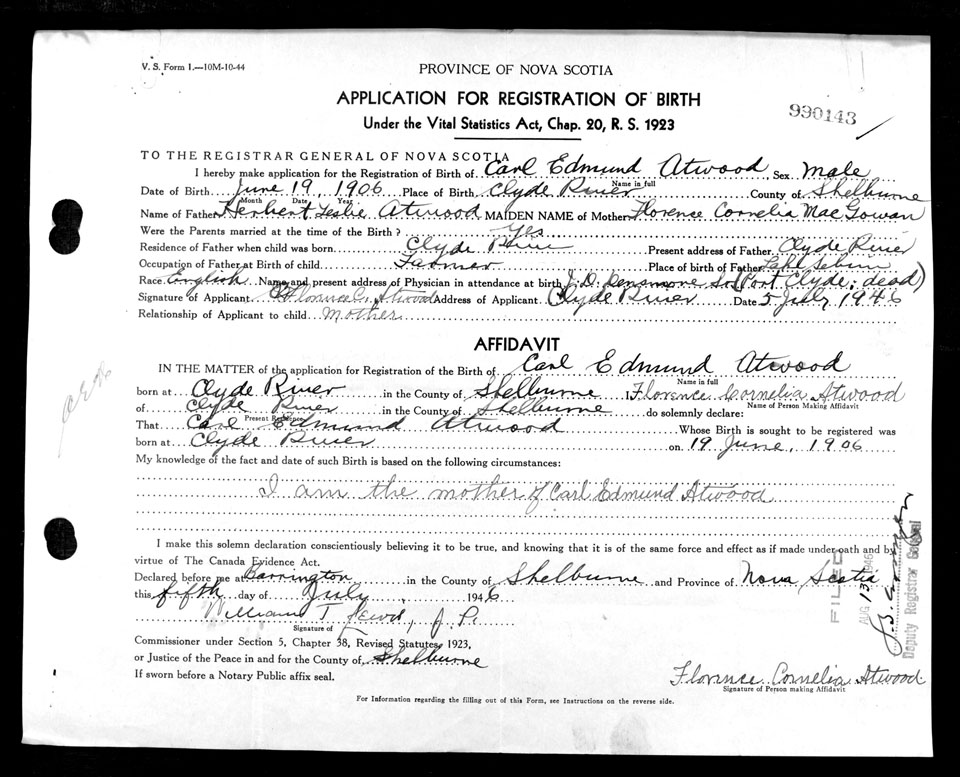 V. S. Form 1.—10M-10-44
PROVINCE OF NOVA SCOTIA
APPLICATION FOR REGISTRATION OF BIRTH
Under the Vital Statistics Act, Chap. 20, R. S. 1923
990143
TO THE REGISTRAR GENERAL OF NOVA SCOTIA
I hereby make application for the Registration of Birth of Carl Edmund Atwood Sex Male
Name in full
Date of Birth June 19 1906 Place of Birth Clyde River County of Shelburne
Month Date Year
Name of Father Herbert Leslie Atwood MAIDEN NAME of Mother Florence Cornelia MacGowan
Were the Parents married at the time of the Birth? Yes
Residence of Father when child was born Clyde River Present address of Father Clyde River
Occupation of Father at Birth of child Farmer Place of birth of Father
Race English Name and present address of Physician in attendance at birth J. D. Densmore (Port Clyde; dead)
Signature of Applicant Florence C. Atwood Address of Applicant Clyde River Date 5 July, 1946
Relationship of Applicant to child mother
AFFIDAVIT
IN THE MATTER of the application for Registration of the Birth of Carl Edmund Atwood
Name in full
born at Clyde River in the County of Shelburne I, Florence Cornelia Atwood
Name of Person Making Affidavit
of Clyde River in the County of Shelburne do solemnly declare:
Present Residence
That Carl Edmund Atwood Whose Birth is sought to be registered was
born at Clyde River on 19 June, 1906
My knowledge of the fact and date of such Birth is based on the following circumstances:
I am the mother of Carl Edmund Atwood
I make this solemn declaration conscientiously believing it to be true, and knowing that it is of the same force and effect as if made under oath and by
virtue of The Canada Evidence Act.
Declared before me at Barrington in the County of Shelburne and Province of Nova Scotia
this fifth day of July, 1946
William T. J. P.
Signature of
Commissioner under Section 5, Chapter 38, Revised Statutes, 1923,
or Justice of the Peace in and for the County of Shelburne
If sworn before a Notary Public affix seal.
Florence Cornelia Atwood
Signature of Person making Affidavit
For Information regarding the filling out of this Form, see Instructions on the reverse side.
FILED
AUG 13 1946
Deputy Registrar General